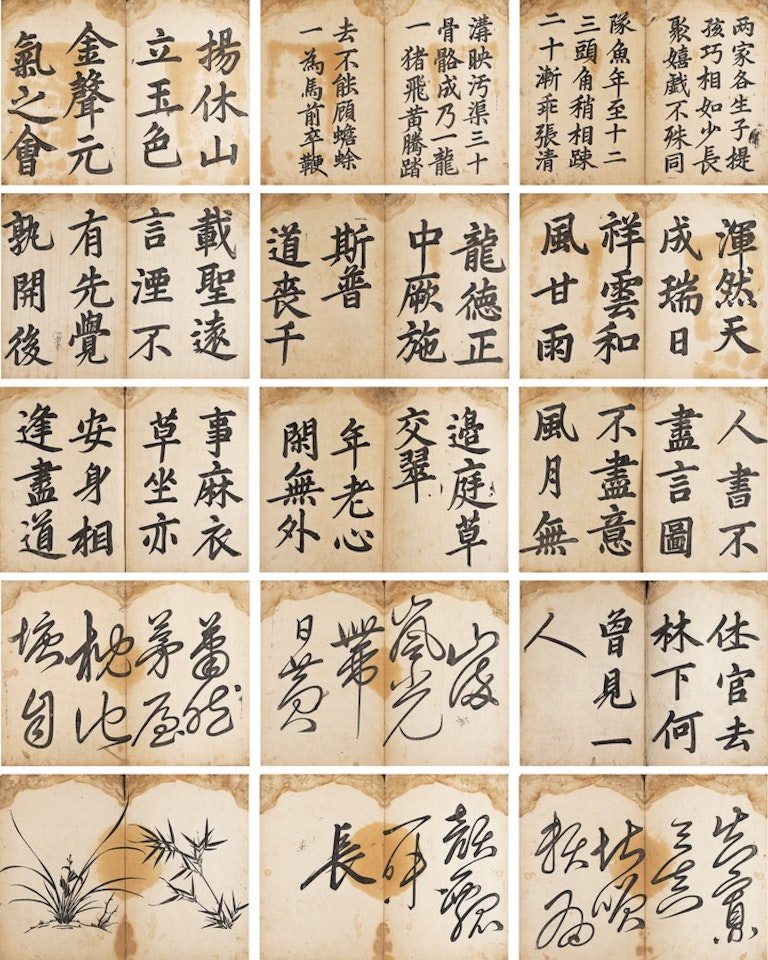 两家各生子提
孩巧相如少長
聚嬉戲不殊同
隊魚年至十二
三頭角稍相踈
二十漸乖張清
溝映汚渠三十
骨骼成乃一龍
一猪飛黄騰踏
去不能顧蟾蜍
一為馬前卒鞭
揚休山
立玉色
金聲元
氣之會
渾然天
成瑞日
祥雲和
風甘雨
龍徳正
中厥施
斯普
道喪千
載聖遠
言湮不
有先覺
孰開後
人書不
盡言圖
不盡意
風月無
邉庭草
交翠
年老心
閑無外
事麻衣
草坐亦
安身相
逢盡道
仕官去
林下何
曾見一
人
山
嵐光
帶
日黄
蕭然
茅屋
枕池
塘自
知寡
與真
堪笑
頼有
顔瓢
一味
長